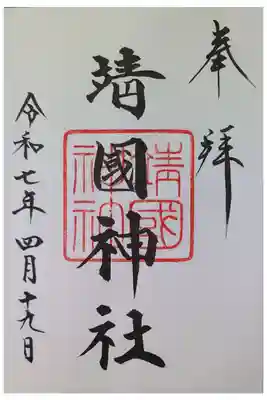 奉拝
靖國神社
靖國神社
令和七年四月十九日